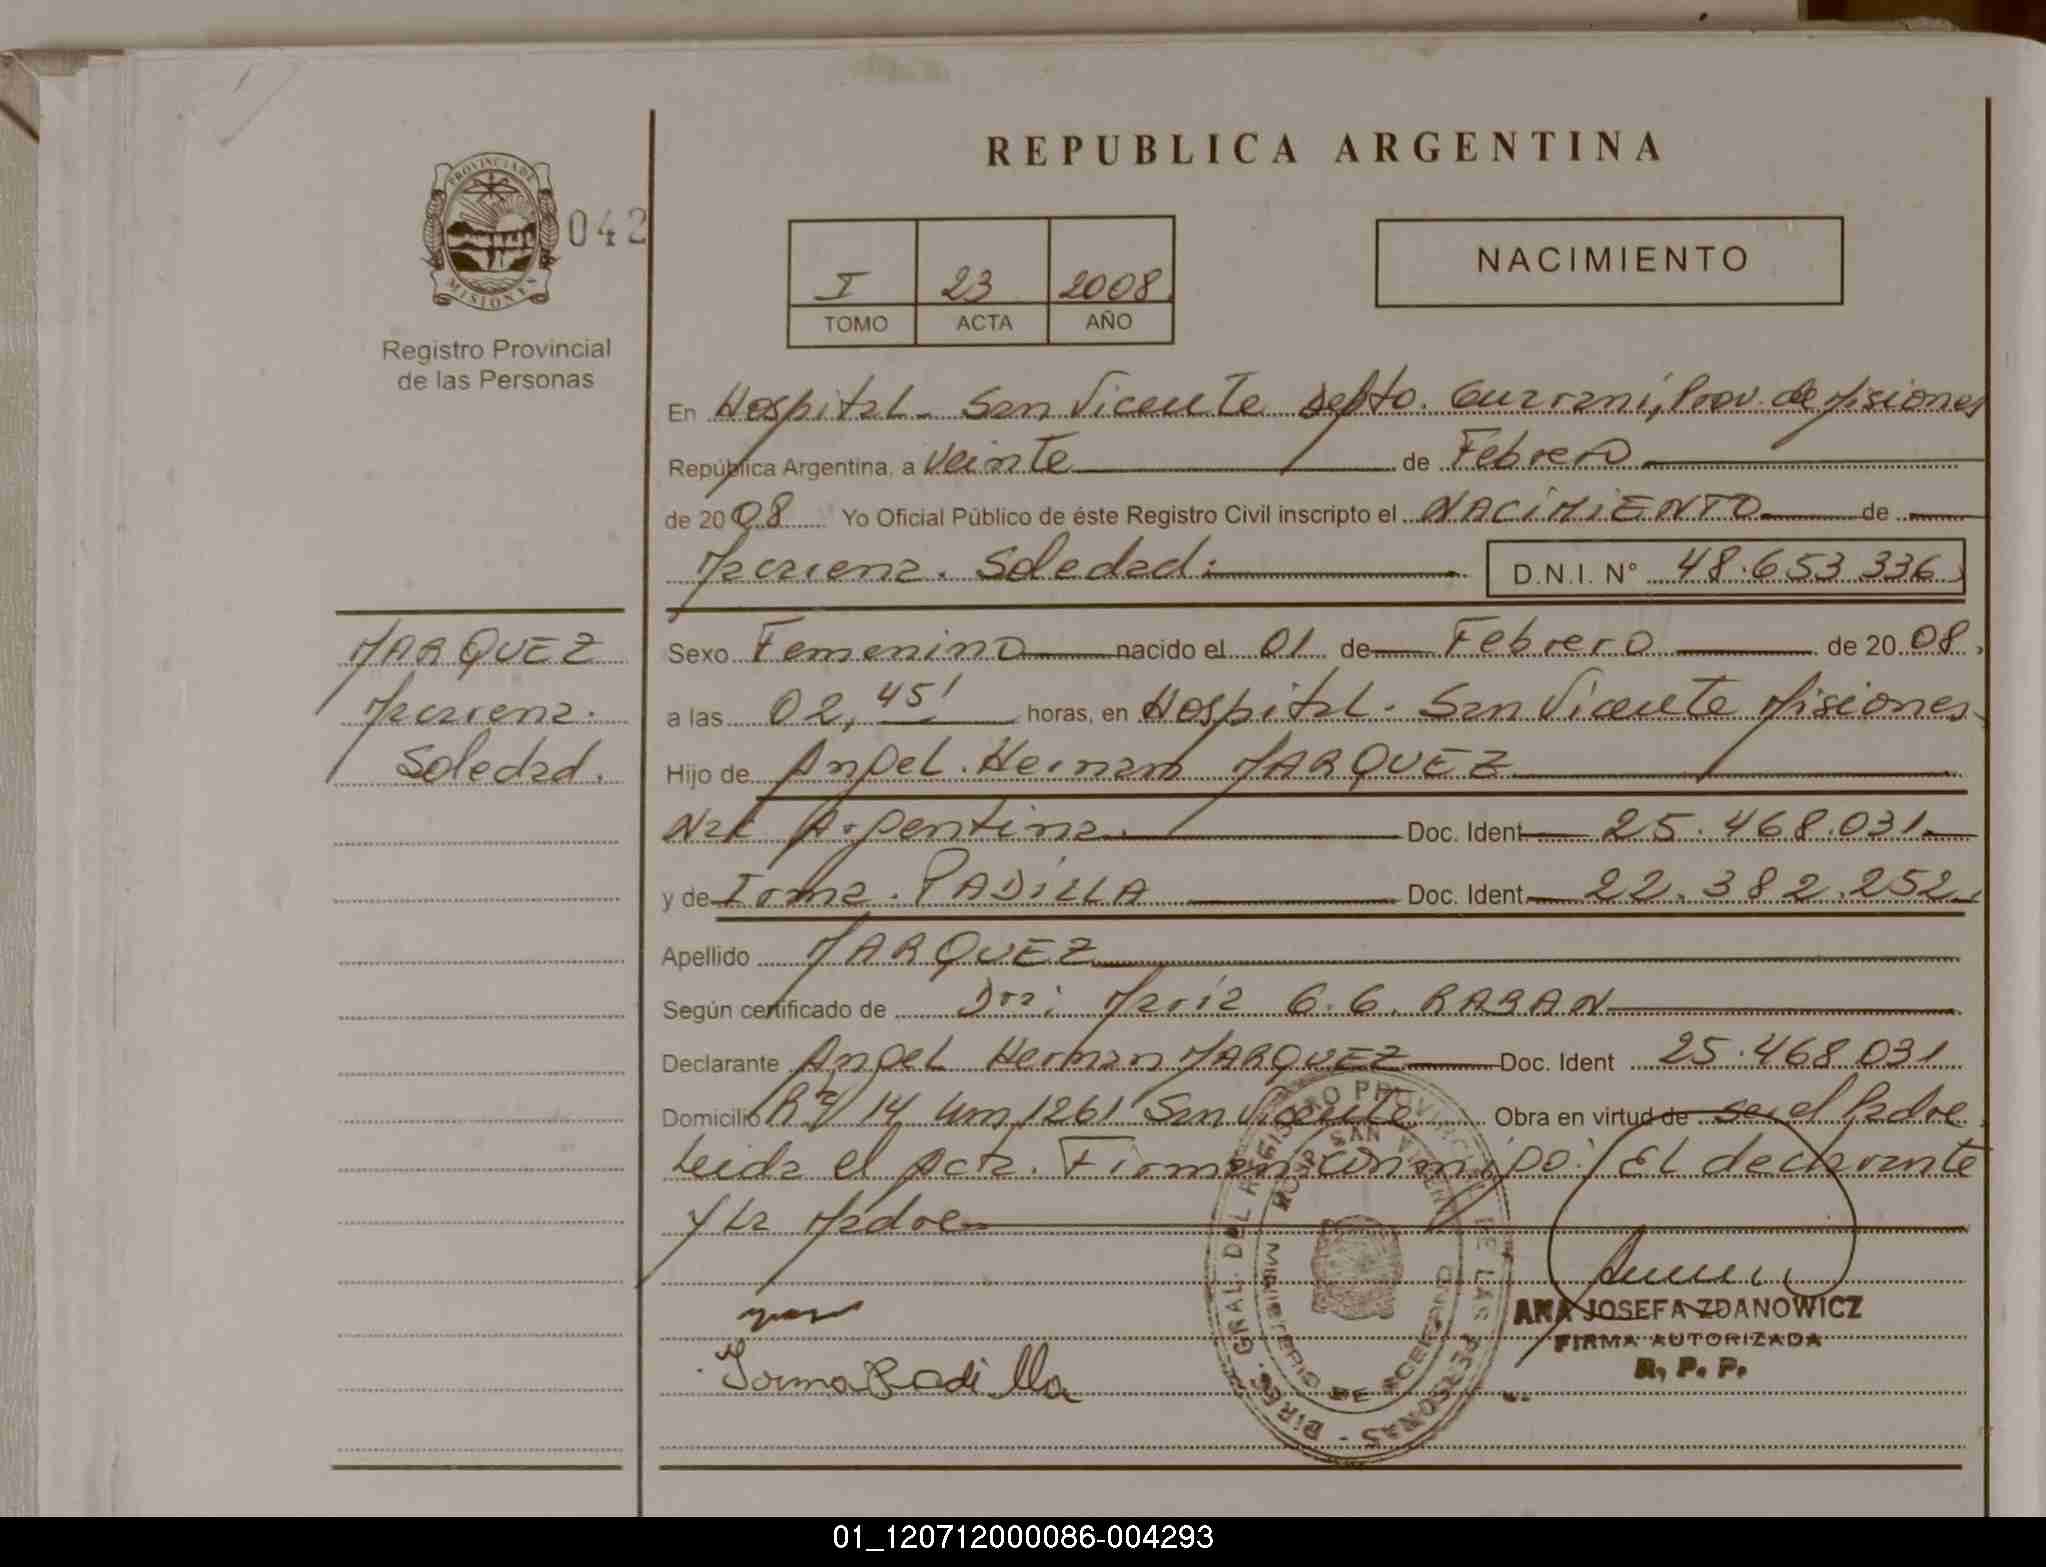 REPUBLICA ARGENTINA
PROVINCIA DE
MISIONES
042
Registro Provincial
de las Personas
I 23 2008
TOMO ACTA AÑO
NACIMIENTO
En Hospital - San Vicente Depto. Guarani, Prov. de Misiones
República Argentina, a veinte de Febrero
de 2008 Yo Oficial Público de éste Registro Civil inscripto el NACIMIENTO de
Macarena. Soledad: D.N.I. N° 48.653.336
MARQUEZ
Macarena.
Soledad.
Sexo Femenino nacido el 01 de Febrero de 2008.
a las 02,45' horas, en Hospital - San Vicente Misiones
Hijo de Angel Hernan MARQUEZ
Nac Argentina. Doc. Ident 25.468.031
y de Irma. PADILLA Doc. Ident 22.382.252
Apellido MARQUEZ
Según certificado de Dra: Maria G.G. BARAN
Declarante Angel Hernan MARQUEZ Doc. Ident 25.468.031
Domicilio R 14 km 1261 San Vicente Obra en virtud de ser el Padre
Leida el acta. Firman conmigo: El declarante
y la Madre
Irma Padilla
DIREC. GRAL. DEL REGISTRO PROVINCIAL DE LAS PERSONAS
HOSP. SAN VICENTE
MINISTERIO DE
ANA JOSEFA ZDANOWICZ
FIRMA AUTORIZADA
R. P. P.
01_120712000086-004293